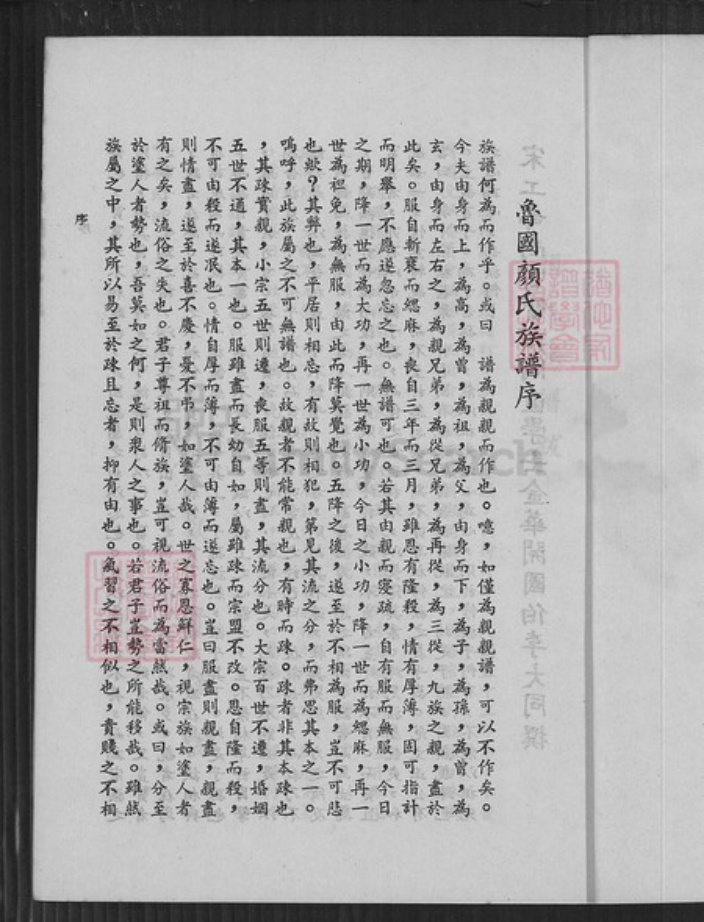 魯國顏氏族譜序
族譜何為而作乎。或曰　譜為親親而作也。噫，如僅為親親譜，可以不作矣。
今夫由身而上，為高，為曾，為祖，為父，由身而下，為子，為孫，為曾，為
玄，由身而左右之，為親兄弟，為從兄弟，為再從，為三從，九族之親，盡於
此矣。服自斬衰而緦麻，喪自三年而三月，雖恩有隆殺，情有厚薄，固可指計
而明舉，不應遂忽忘之也。無譜可也。若其由親而寖疏，自有服而無服，今日
之期，降一世而為大功，再一世為小功，今日之小功，降一世而為緦麻，再一
世為袒免，為無服，由此而降莫覺也。五降之後，遂至於不相為服，豈不可悲
也歟？其弊也，平居則相忘，有故則相犯，第見其流之分，而弗思其本之一。
嗚呼，此族屬之不可無譜也。故親者不能常親也，有時而踈。踈者非其本踈也
，其踈實親，小宗五世則遷，喪服五等則盡，其流分也。大宗百世不遷，婚姻
五世不通，其本一也。服雖盡而長幼自如，屬雖踈而宗盟不改。恩自隆而殺，
不可由殺而遂泯也。情自厚而薄，不可由薄而遂忘也。豈曰服盡則親盡，親盡
則情盡，遂至於喜不慶，憂不弔，如塗人哉。世之寡恩鮮仁，視宗族如塗人者
有之矣，流俗之失也。君子尊祖而脩族，豈可視流俗而為當然哉。或曰，分至
於塗人者勢也，吾莫如之何，是則衆人之事也。若君子豈勢之所能移哉。雖然
族屬之中，其所以易至於踈且忘者，抑有由也。氣習之不相似也，貴賤之不相
序